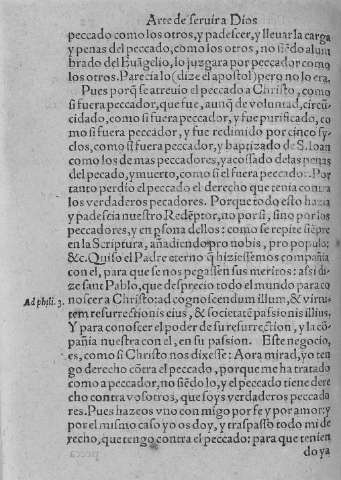 Arte de seruir a Dios
peccado como los otros, y padescer, y lleuar la carga
y penas del peccado, como los otros, no siẽdo alum
brado del Euãgelio, lo juzgara por peccador como
los otros. Parecialo (dize el apostol) pero no lo era.
Pues porq̃ se atreuio el peccado a Christo, como
si fuera peccador, que fue, aunq̃ de voluntad, circũ
cidado, como si fuera peccador, y fue purificado, co
mo si fuera peccador, y fue redimido por cinco sy-
clos, como si fuera peccador, y baptizado de S. Ioan
como los de mas peccadores, y acossado de las penas
del pecado, y muerto, como si el fuera peccador. Por
tanto perdio el peccado el derecho que tenia contra
los verdaderos pecadores. Porque todo esto hazia
y padescia nuestro Redẽptor, no por si, sino por los
peccadores, y en p̃sona dellos: como se repite siẽpre
en la Scriptura, añadiendo pro nobis, pro populo:
&c. Quiso el Padre eterno q̃ hiziessemos compañia
con el, para que se nos pegassen sus meritos: assi di-
ze sant Pablo, que desprecio todo el mundo para co
Ad phili. 3. noscer a Christo: ad cognoscendum illum, & virtu
tem resurrectionis eius, & societatẽ passionis illius,
Y para conoscer el poder de su resurrection, y la cõ
pañia nuestra con el, en su passion. Este negocio,
es, como si Christo nos dixesse: Aora mirad, yo ten
go derecho cõtra el peccado, porque me ha tratado
como a peccador, no siẽdo lo, y el peccado tiene dere
cho contra vosotros, que soys verdaderos peccado
res. Pues hazeos vno con migo por fe y por amor: y
por el mismo caso yo os doy, y traspasso todo mi de
recho, que tengo contra el peccado: para que tenien
do ya